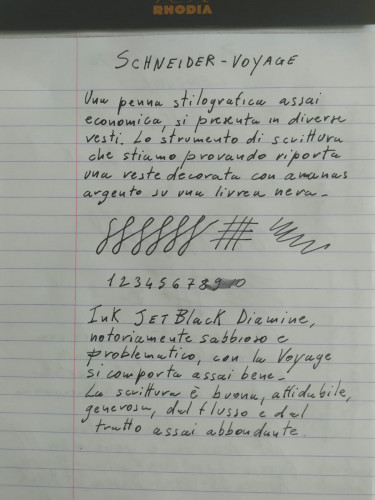 RHODIA
SCHNEIDER - VOYAGE
Una penna stilografica assai
economica, si presenta in diverse
vesti. Lo strumento di scrittura
che stiamo provando riporta
una veste decorata con amanas
argento su una livrea nera.
1 2 3 4 5 6 7 8 9 0
Ink JET Black Diamine,
notoriamente sabbioso e
problematico, con la Voyage
si comporta assai bene.
La scrittura è buona, affidabile,
generosa, dal flusso e dal
tratto assai abbondante.